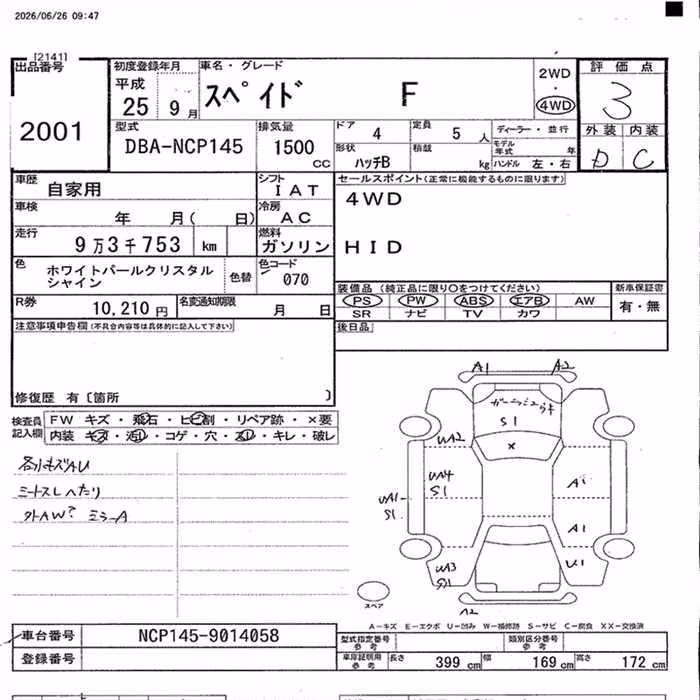 2026/06/26 09:47
[2141]
出品番号
2001
初度登録年月
平成
25 9 月
車名・グレード
スペイド F
2WD
・
4WD
評価点
3
外装 内装
D C
型式
DBA-NCP145
排気量
1500 cc
ドア 4
定員 5 人
ディーラー・並行
モデル年式 年
形状 ハッチB
積載 kg
ハンドル 左・右
車歴 自家用
シフト IAT
車検 年 月( 日)
冷房 AC
走行 9万3千753 km
燃料 ガソリン
色 ホワイトパールクリスタル
シャイン
色替
色コード 070
R券 10,210 円
名変通知期限 月 日
セールスポイント(正常に機能するものに限ります)
4WD
HID
装備品 (純正品に限り〇をつけてください)
PS PW ABS エアB AW
SR ナビ TV カワ
新車保証書
有・無
後日品
注意事項申告欄(不具合内容等は具体的に記入して下さい)
修復歴 有〔箇所 〕
検査員
記入欄
FW キズ・飛石・ヒビ割・リペア跡・×要
内装 キズ・汚レ・コゲ・穴・スレ・キレ・破レ
ミートスレへたり
外AW? ミラーA
A1 A2
S1
×
UA2
UA4
S1
UA1
S1
A1
A1
U1
UA3
S1
A2
スペア
A−キズ E−エクボ U−凹み W−補修跡 S−サビ C−腐食 XX−交換済
車台番号 NCP145-9014058
登録番号
型式指定番号
参考
類別区分番号
参考
車庫証明用
参考
長さ 399 cm 幅 169 cm 高さ 172 cm